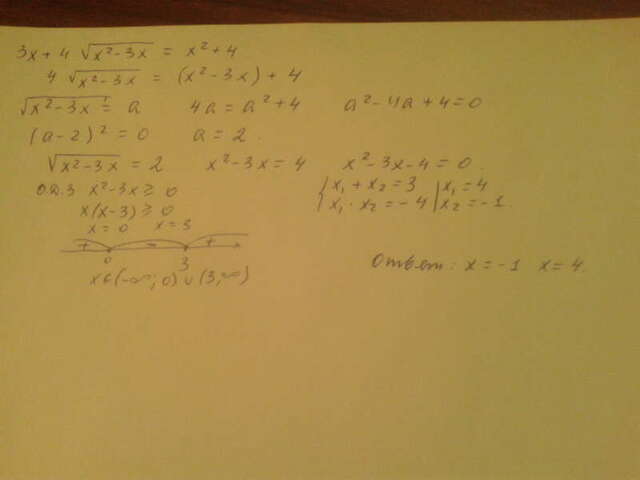 3x + 4 √(x² - 3x) = x² + 4
4 √(x² - 3x) = (x² - 3x) + 4
√(x² - 3x) = a    4a = a² + 4    a² - 4a + 4 = 0
(a - 2)² = 0    a = 2.
√(x² - 3x) = 2    x² - 3x = 4    x² - 3x - 4 = 0.
О.Д.З x² - 3x ≥ 0    { x₁ + x₂ = 3 | x₁ = 4
x(x - 3) ≥ 0    x₁ · x₂ = -4 | x₂ = -1.
x = 0    x = 3
+ - +
0 3
x ∈ (-∞; 0) ∪ (3, ∞)
Ответ: x = -1 x = 4.